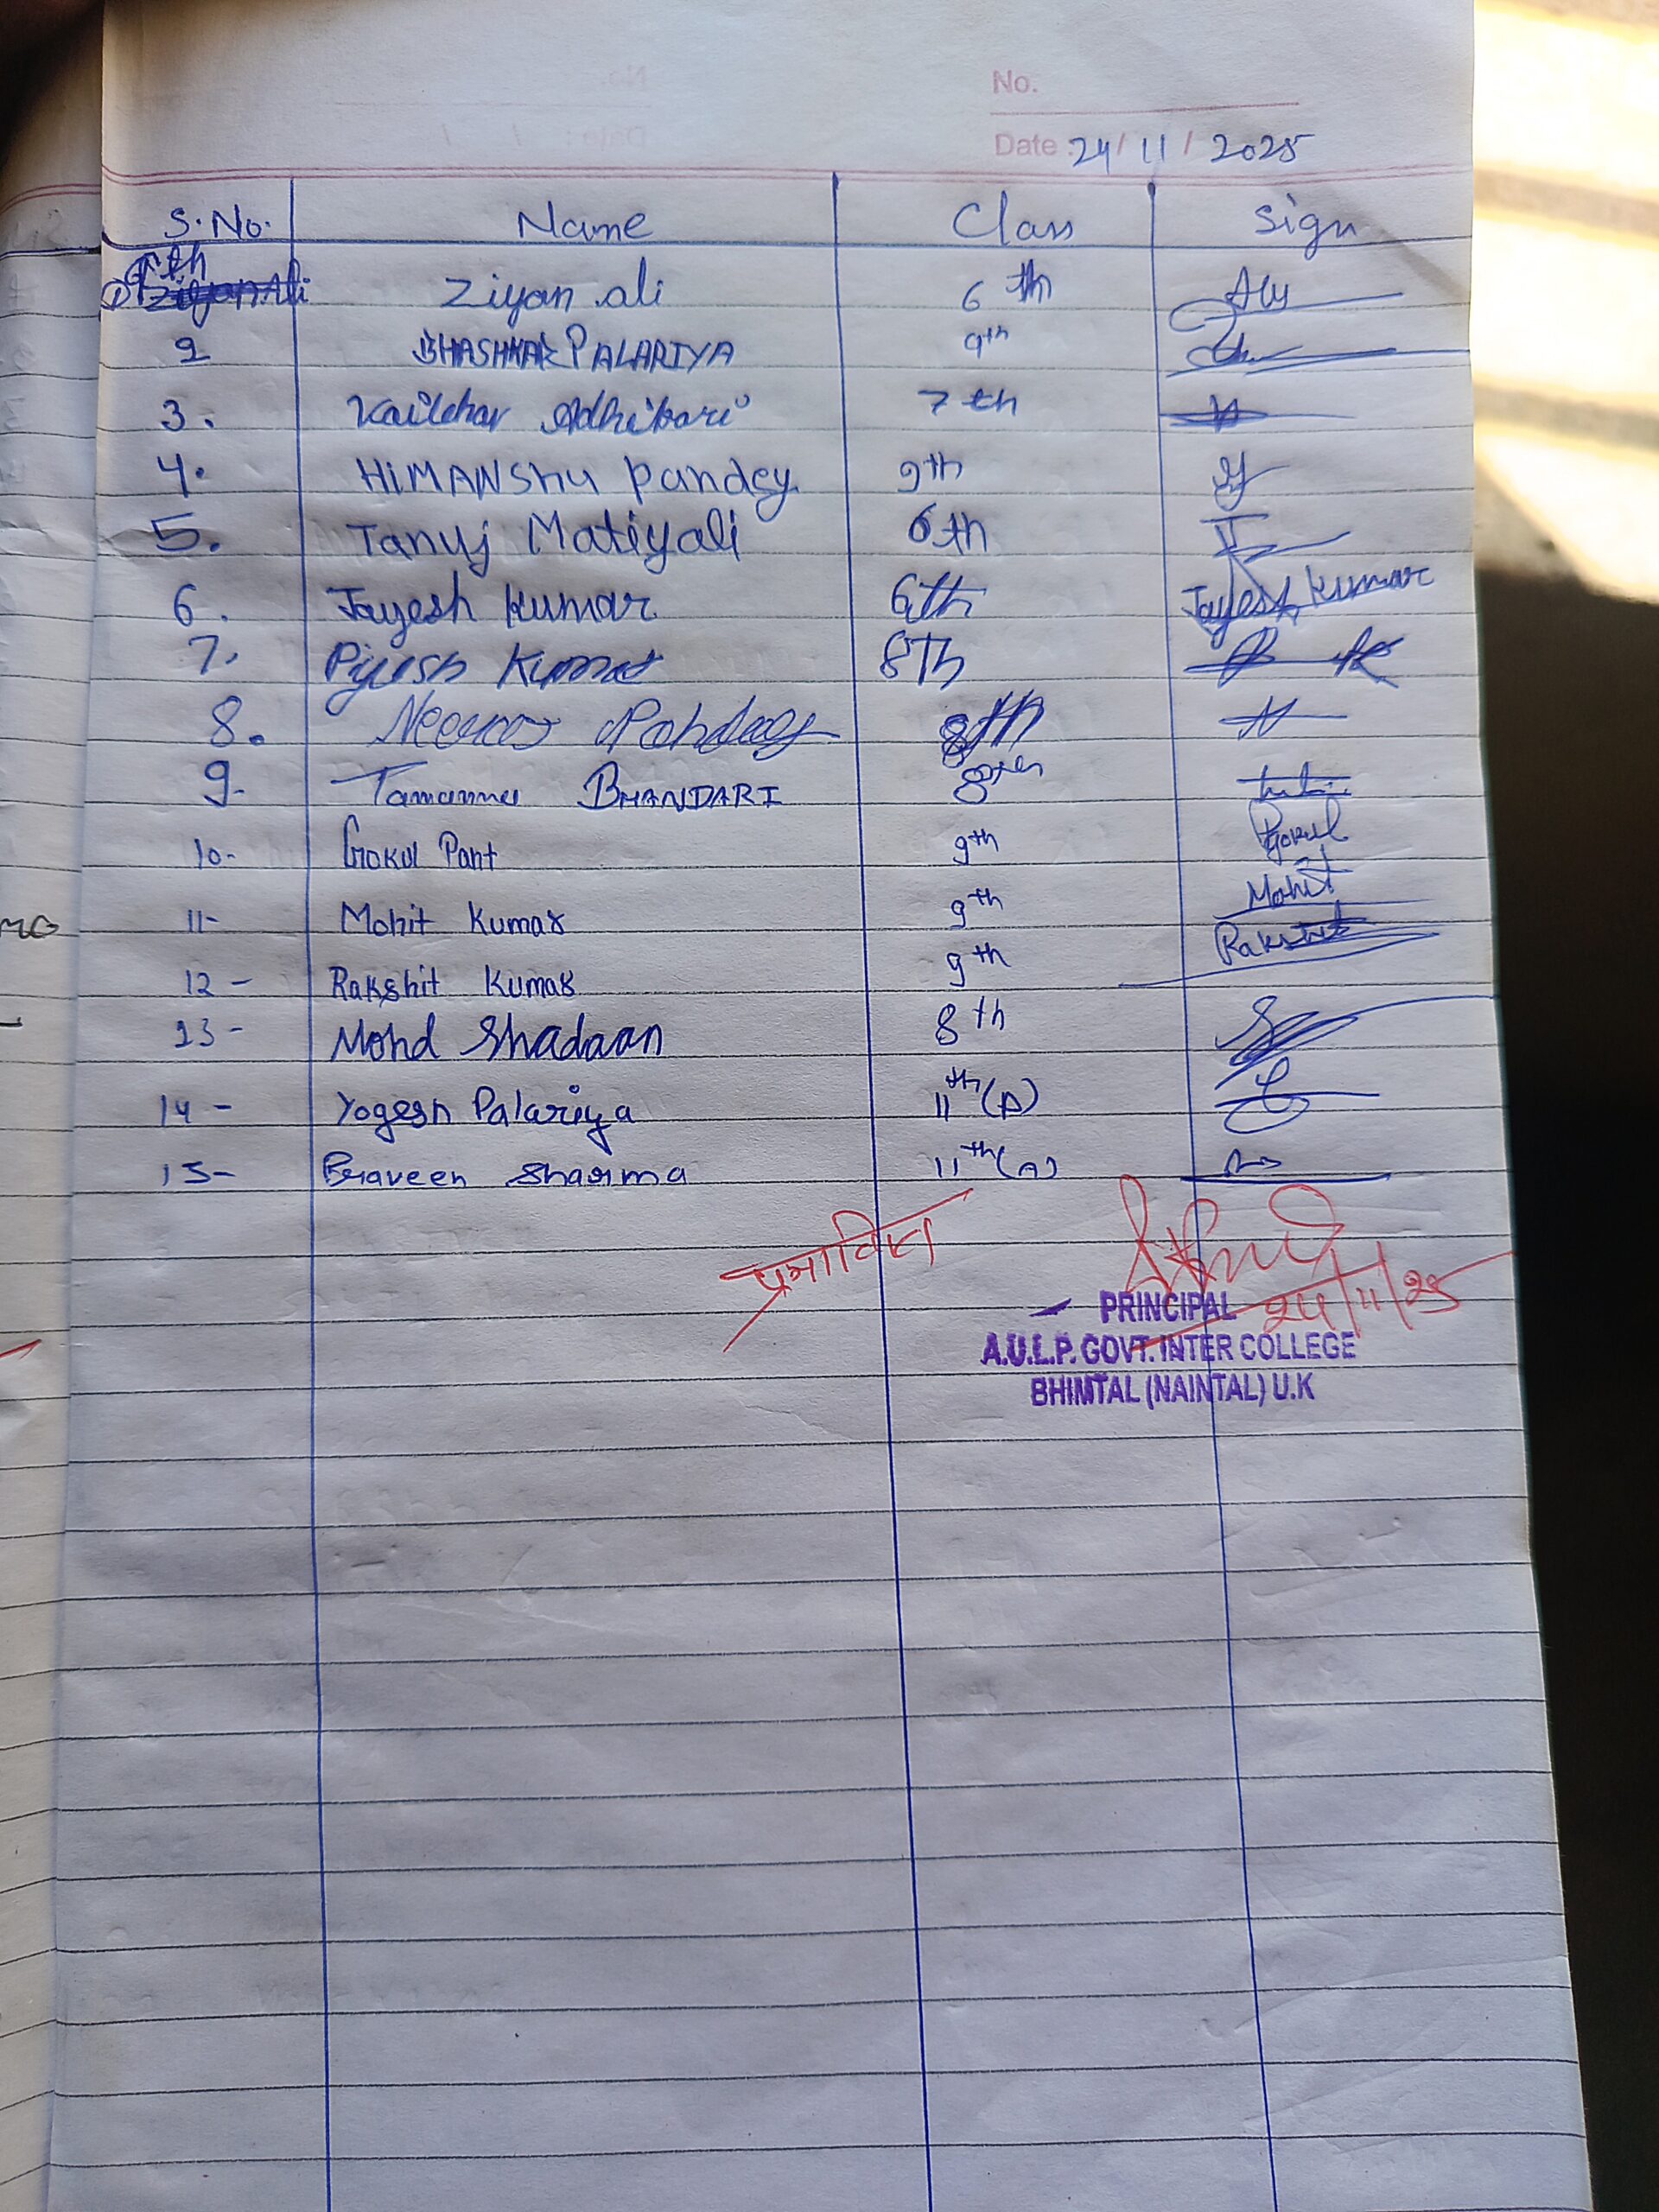 No.
Date : 24/11/2025
S.No. Name Class Sign
6th
① Ziyan Ali Ziyan ali 6th Ali
2 BHASHKAR PALARIYA 9th
3. Adhikari 7th
4. HIMANSHU Pandey. 9th
5. Tanuj Matiyali 6th
6. Jayesh Kumar 6th Jayesh Kumar
7. Piyush Kumar 8Th
8. Neeraj Pandey 8th
9. Tamanna BHANDARI 8th
10- Gokul Pant 9th Gokul
11- Mohit Kumar 9th Mohit
12- Rakshit Kumar 9th Rakshit
13- Mohd Shadaan 8th
14- Yogesh Palariya 11th (A)
15- Praveen Sharma 11th (A)
प्रमाणित
24/11/25
PRINCIPAL
A.U.L.P. GOVT. INTER COLLEGE
BHIMTAL (NAINTAL) U.K